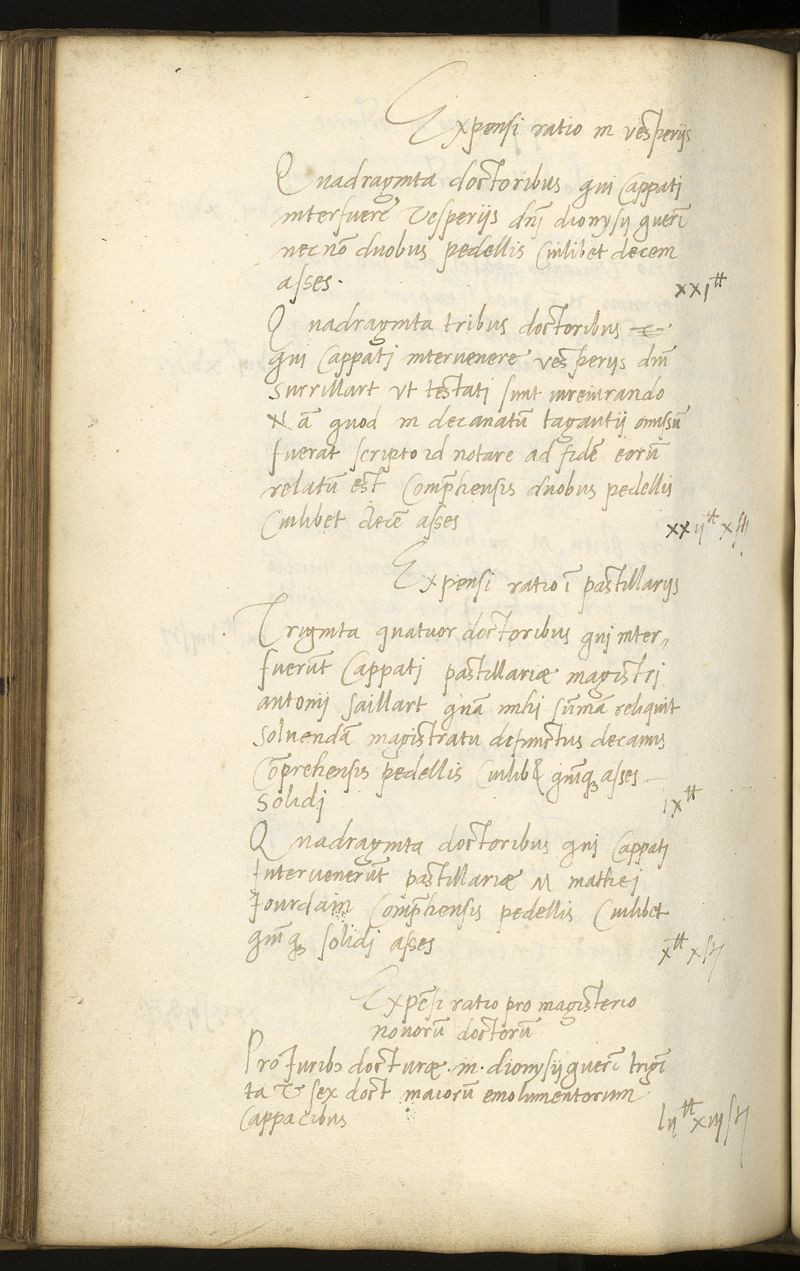 Expensi ratio in vesperijs
Quadraginta doctoribus qui Cappati
interfuere Vesperijs dnj dionysij guerī
nec nō duobus pedellis Cuilibet decem
asses.
xxj ₶
Quadraginta tribus doctoribus
qui Cappatj intervenere vesperijs dnī
Surrillart vt testati sunt iureiurando
Nā quod in decanatū tagautij omissū
fuerat scripto id notare ad fidē eorū
relatū est Comp̄hensis duobus pedellis
Cuilibet decē asses
xxij ₶ x ſ
Expensi ratio ī pastillarijs
Triginta quatuor doctoribus quj inter„
fuerūt Cappatj pastillariæ magistrj
antonij saillart quā mihj sūmā reliquit
soluendā magistratu defunctus decanus
Cōprehensis pedellis Cuilibꝫ quīqꝫ asses
Solidj
ix ₶
Quadraginta doctoribus quj Cappatj
Interuenerūt pastillariæ M mathej
Jourdain Comp̄hensis pedellis Cuilibet
quīqꝫ solidj asses
x ₶ x ſ
Expēsi ratio pro magisterio
nouorū doctorū
Pro Juribꝫ docturæ .m. dionysij guerī trigī
ta & sex doct maiorū emolumentorum
Cappacibus
lij ₶ xvij ſ